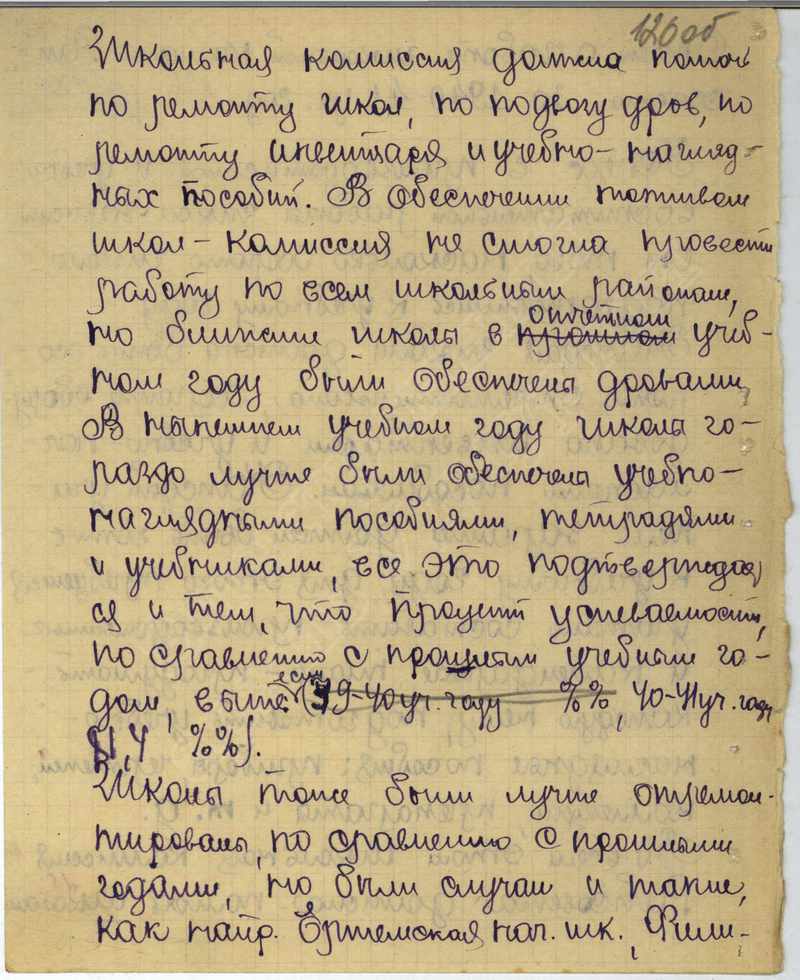 120об
Школьная комиссия должна помочь
по ремонту школ, по подвозу дров, по
ремонту инвентаря и учебно-нагляд-
ных пособий. В обеспечении топливом
школ - комиссия не смогла провести
работу по всем школьным районам,
отчетном
но ближние школы в прошлом учеб-
ном году были обеспечены дровами
В нынешнем учебном году школы го-
раздо лучше были обеспечены учебно-
наглядными пособиями, тетрадями
и учебниками, все это подтверждает
ся и тем, что процент успеваемости,
по сравнению с прошлым учебным го-
дом, выше (39-40 уч. году %%, 40-41 уч. году
81,4 %%).
Школы тоже были лучше отремон-
тированы, по сравнению с прошлыми
годами, но были случаи и такие,
как напр. Ертемская нач. шк., Фили-